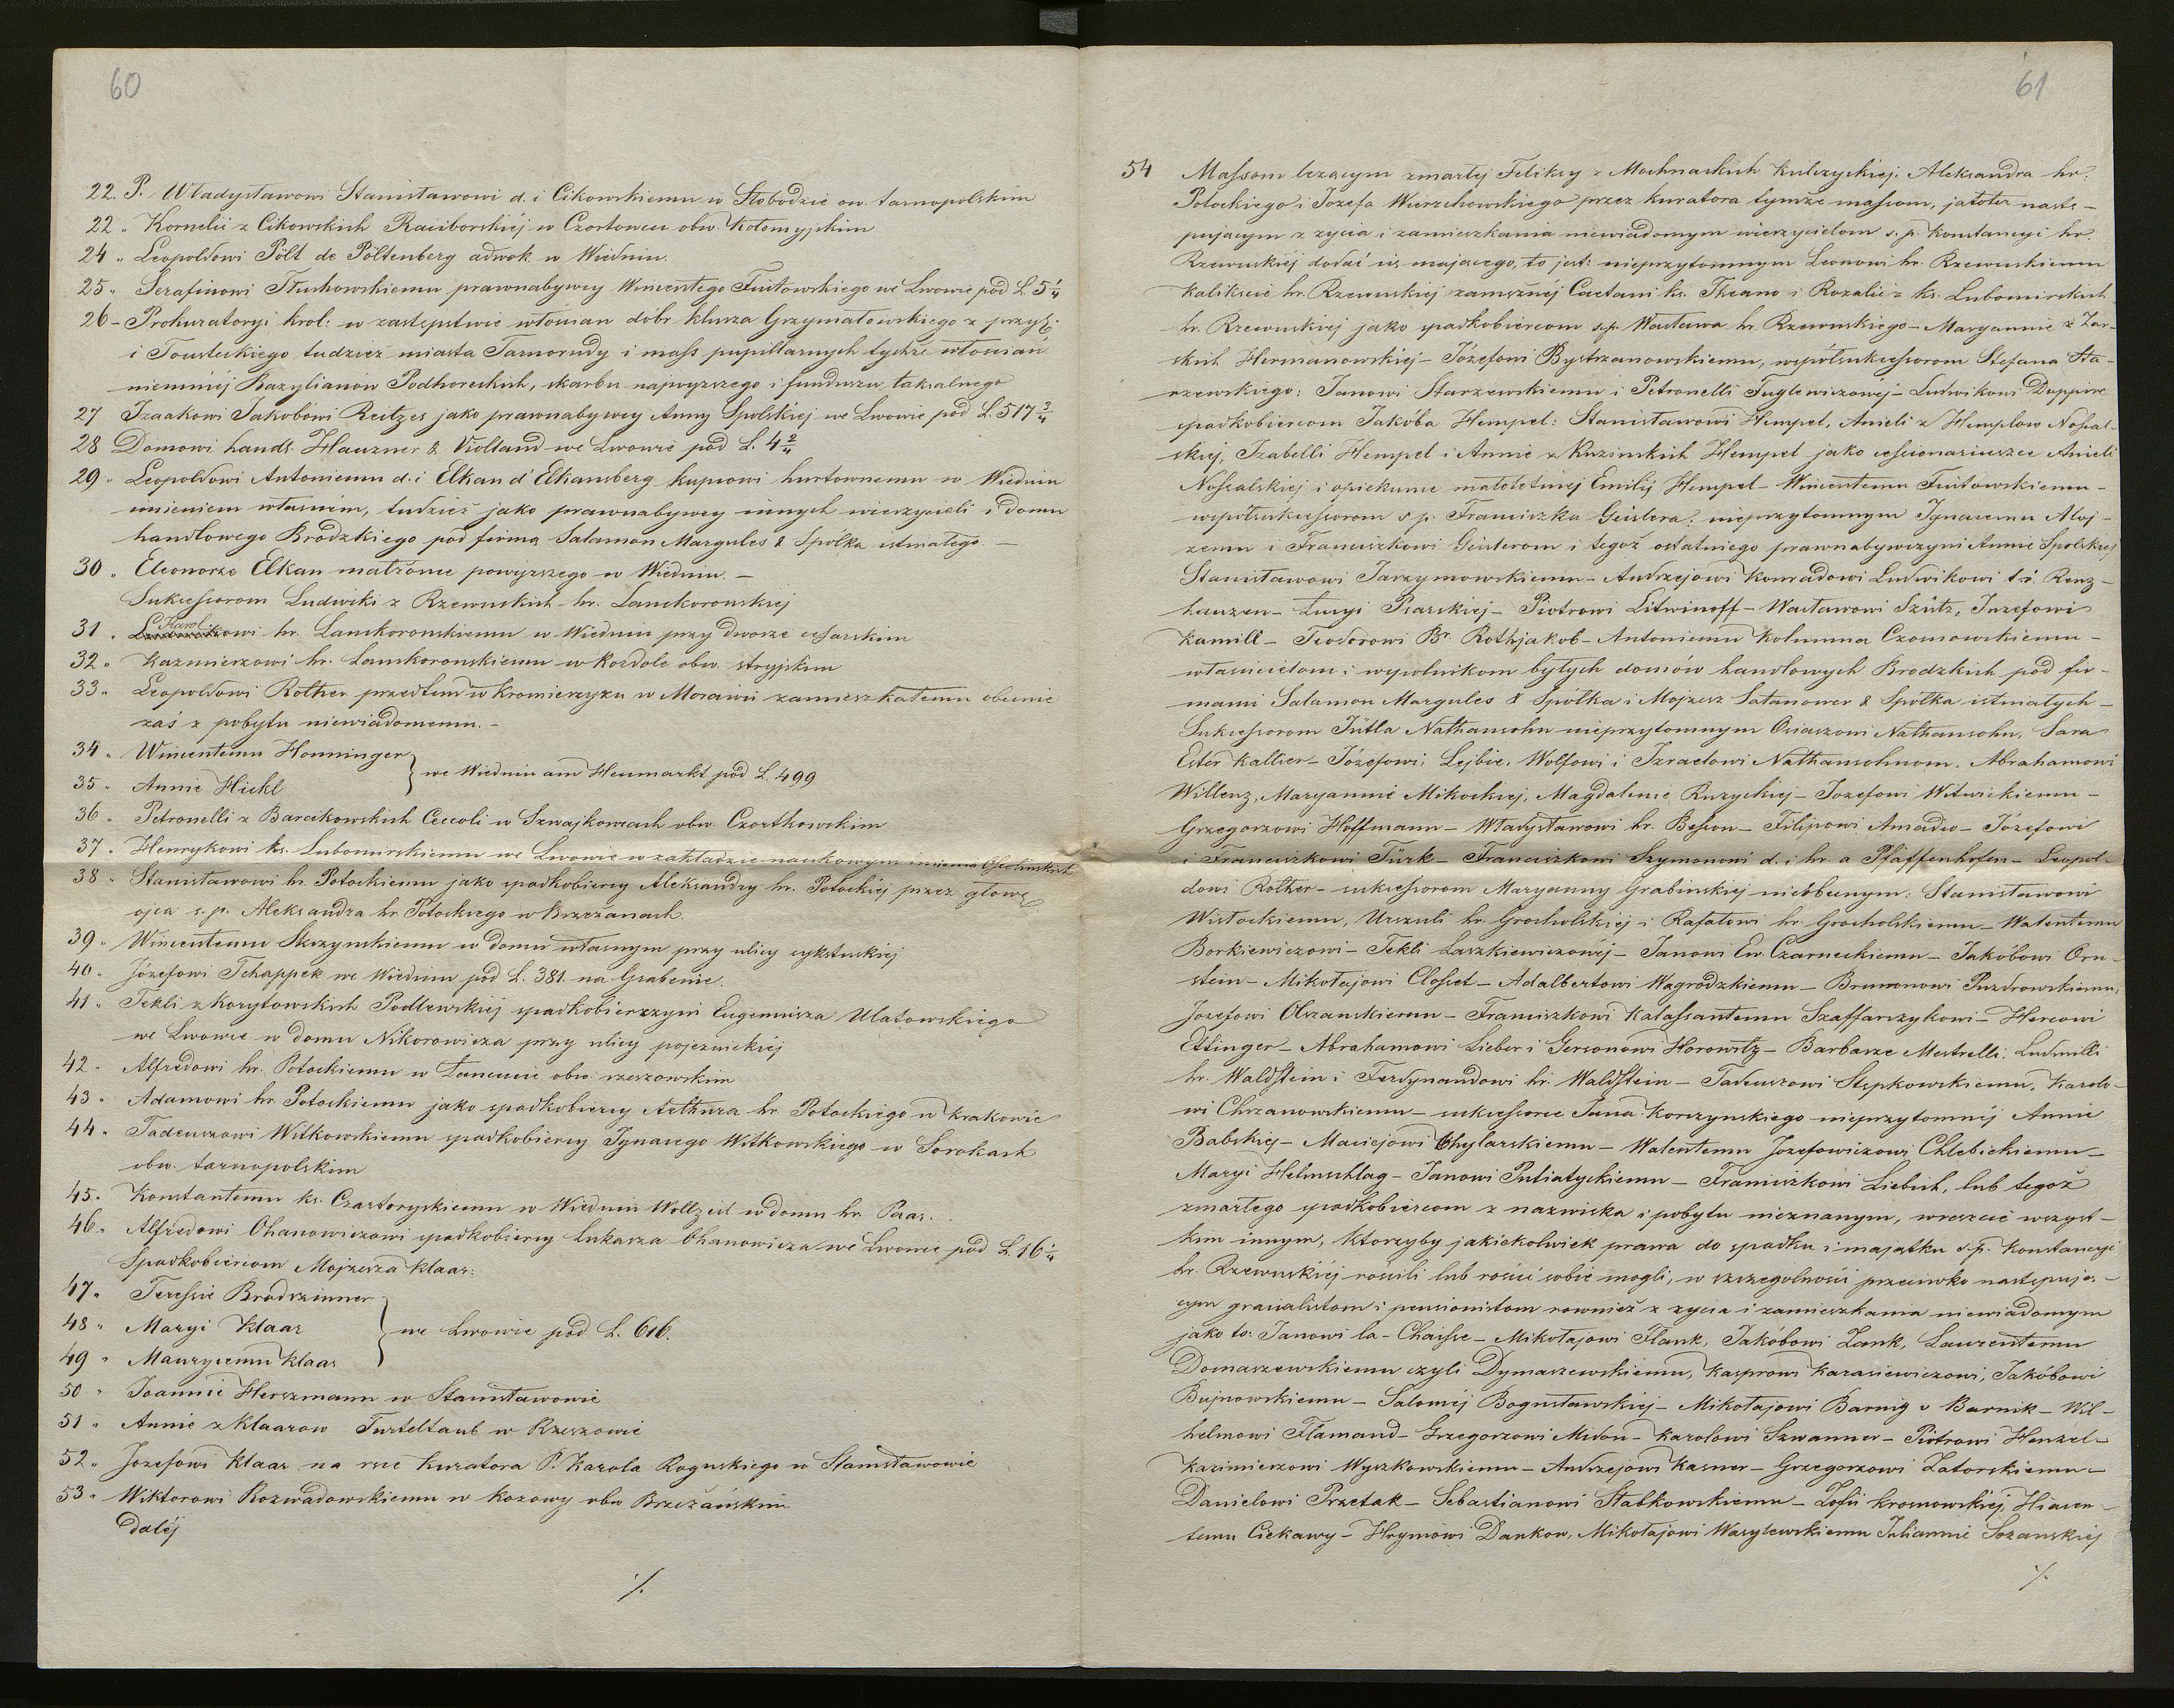 60
22. P. Władysławowi Stanisławowi d. i Cikowskiemu w Słobodzie ow. tarnopolskim
22 „ Kornelii z Cikowskich Raciborskiéj w Czortowcu obw. Kołomyjskim
24 „ Leopoldowi Pölt de Pöltenberg adwok. w Wiedniu.
25 „ Serafinowi Tłuchowskiemu prawnabywcy Wincentego Fuitowskiego we Lwowie pod L. 5 1/4
26 – Prokuratoryi krol: w zastępstwie włościan dobr klucza Grzymałowskiego z przyl:
i Tousteckiego tudzież miasta Tarnorudy i mass pupillarnych tychże włościan
niemniéj Bazylianów Podhoreckich, skarbu najwyższego i funduszu taksalnego
27 Izaakowi Jakobowi Reitzes jako prawnabywcy Anny Spolskiéj we Lwowie pod L. 517 3/4
28 Domowi handl. Hauzner & Violland we Lwowie pod L. 4 2/4
29 „ Leopoldowi Antoniemu d. i Elkan d'Elkansberg kupcowi hurtownemu w Wiedniu
imieniem własnem, tudzież jako prawnabywcy innych wierzycieli i domu
handlowego Brodzkiego pod firmą Salamon Margules & Spółka istniałego —
30 „ Eleonorze Elkan małżonce powyższego w Wiedniu. —
Sukcessorom Ludwiki z Rzewuskich hr. Lanckorońskiej
31 „ Karolowi hr. Lanckoronskiemu w Wiedniu przy dworze cesarskim
32 „ Kazimierzowi hr. Lanckoronskiemu w Rozdole obw. stryjskim
33 „ Leopoldowi Rother przedtem w Kromierzyzu w Morawii zamieszkałemu obecnie
zaś z pobytu niewiadomemu. –
34 „ Wincentemu Honninger
35 „ Annie Hickl
we Wiedniu am Heumarkt pod L. 499
36 „ Petronelli z Barcikowskich Ceccoli w Szwajkowcach obw. Czortkowskim
37 „ Henrykowi ks. Lubomirskiemu we Lwowie w zakładzie naukowym imienia Ossolinskich
38 „ Stanisławowi hr. Potockiemu jako spadkobiercy Aleksandry hr. Potockiej przez głowę
ojca s. p. Aleksandra hr. Potockiego w Brzeżanach.
39 „ Wincentemu Skrzynskiemu w domu własnym przy ulicy cykstuskiej
40 „ Józefowi Tchappek we Wiedniu pod L. 381. na Grabenie.
41 „ Tekli z Korytowskich Podlewskiéj spadkobierczyni Eugeniusza Ulatowskiego
we Lwowie w domu Nikorowicza przy ulicy pojezuickiéj
42 „ Alfredowi hr. Potockiemu w Łancucie obw. rzeszowskim
43 „ Adamowi hr. Potockiemu jako spadkobiercy Arthura hr. Potockiego w Krakowie
44 „ Tadeuszowi Witkowskiemu spadkobiercy Ignacego Witkowskiego w Sorokach
obw. tarnopolskim
45 „ Konstantemu ks. Czartoryskiemu w Wiedniu Wollzeil w domu hr. Paar.
46 „ Alfredowi Ohanowiczowi spadkobiercy Łukasza Ohanowicza we Lwowie pod L. 16 1/4
Spadkobiercom Mojzesza Klaar:
47 „ Teressie Brodzinner
48 „ Maryi Klaar
we Lwowie pod L. 616.
49 „ Maurycemu Klaar
50 „ Joannie Herszmann w Stanisławowie
51 „ Annie z Klaarow Turteltaub w Rzeszowie
52 „ Jozefowi Klaar na ręce Kuratora P. Karola Roguskiego w Stanisławowie
53 „ Wiktorowi Rozwadowskiemu w Kozowy obw Brzeżańskim
Daléj
./.
61
54 Massom leżącym zmarłéj Feliksy z Mochnackich Kulczyckiéj, Aleksandra hr.
Potockiego i Jozefa Wierzchowskiego przez kuratora tymże massom, jakoteż nastę–
pującym z zycia i zamieszkania niewiadomym wierzycielom s. p. Konstancyi hr.
Rzewuskiéj dodać się mającego, to jest: nieprzytomnym Leonowi hr. Rzewuskiemu
Kalikscie hr. Rzewuskiéj zamężnéj Caetani ks. Theano i Rozalii z ks. Lubomirskich
hr. Rzewuskiéj jako spadkobiercom s.p. Wacława hr. Rzewuskiego – Maryannie z Zar–
skich Hermanowskiéj – Józefowi Bystrzanowskiemu, współsukcessorom Stefana Sta–
rzewskiego: Janowi Starzewskiemu i Petronelli Fuglewiczowéj – Ludwikowi Duppire
spadkobiercom Jakóba Hempel: Stanisławowi Hempel, Anieli z Hemplow Nossal–
skiéj, Izabelli Hempel i Annie z Kuzinskich Hempel jako cessionariuszce Anieli
Nossalskiéj i opiekunce małoletniéj Emilij Hempel – Wincentemu Fuitowskiemu –
współsukcessorom s p. Franciszka Geislera: nieprzytomnym Ignacemu Aloj–
zemu i Franciszkowi Geislerom i tegoż ostatniego prawnabywczyni Annie Spolskiéj
Stanisławowi Jarzymowskiemu – Andrzejowi Konradowi Ludwikowi t. i. Renz–
hauzen – Lucyi Psarskiej – Piotrowi Litwinoff – Wacławowi Szütz, Jozefowi
Kamill – Teodorowi Br. Rothjakob – Antoniemu Kolumna Czosnowskiemu –
właścicielom i wspolnikom byłych domów handlowych Brodzkich pod fir–
mami Salamon Margules & Spółka i Mojzesz Satanower & Spółka istniałych –
Sukcessorom Jütla Nathansohn nieprzytomnym Osiaszowi Nathansohn, Sara
Ester Kallier – Józefowi, Lejbie, Wolfowi i Izraelowi Nathansohnom. Abrahamowi
Willenz, Maryannie Mikockiej, Magdalenie Ruzyckiéj – Jozefowi Witwickiemu –
Grzegorzowi Hoffmann – Władysławowi hr. Besson – Filipowi Amadio – Józefowi
i Franciszkowi Türk – Franciszkowi Szymonowi d. i. hr. a Pfaffenhofen – Leopol–
dowi Rother – sukcessorom Maryanny Grabinskiej nieobecnym: Stanisławowi
Wisłockiemu, Urszuli hr. Grocholskiéj i Rafałowi hr. Grocholskiemu – Walentemu
Borkiewiczowi – Tekli Laszkiewiczowéj – Janowi Ew. Czarneckiemu – Jakóbowi Orn–
stein – Mikołajowi Closset – Adalbertowi Wagrodzkiemu – Brunonowi Puzdrowskiemu,
Jozefowi Olszanskiemu – Franciszkowi Kalassantemu Szaffarzykowi – Hercowi
Ettinger – Abrahamowi Lieber i Gersonowi Horowitz – Barbarze Mestrelli, Ludmilli
hr. Waldstein i Ferdynandowi hr. Waldstein – Tadeuszowi Stępkowskiemu, Karolo–
wi Chrzanowskiemu – sukcessorce Jana Korczynskiego nieprzytomnéj Annie
Babskiéj – Maciejowi Chylarskiemu – Walentemu Jozefowiczowi Chlebickiemu –
Maryi Helmschlag – Janowi Puliatyckiemu – Franciszkowi Liebich, lub tegoż
zmarłego spadkobiercom z nazwiska i pobytu nieznanym, wreszcie wszyst–
kim innym, ktorzyby jakiekolwiek prawa do spadku i majątku s.p. Konstancyi
hr. Rzewuskiéj rościli lub rościć sobie mogli, w szczegolności przeciwko następują–
cym gracialistom i pensionistom rownież z zycia i zamieszkania niewiadomym
jako to: Janowi la-Chaisse – Mikołajowi Flank, Jakóbowi Zank, Laurentemu
Domaszewskiemu czyli Dymaszewskiemu, Kasprowi Karasiewiczowi, Jakóbowi
Bujnowskiemu – Saloméj Bogusławskiéj – Mikołajowi Barnig v Barnik – Wil–
helmowi Flamand – Grzegorzowi Midoń – Karolowi Szwanner – Piotrowi Henzel –
Kazimierzowi Wyszkowskiemu – Andrzejowi Kasner – Grzegorzowi Zatorskiemu –
Danielowi Przetak – Sebastianowi Słabkowskiemu – Zofii Krosnowskiéj, Hiacen–
temu Ciekawy – Hrymowi Dankow, Mikołajowi Wasylewskiemu Juliannie Sozanskiéj
./.